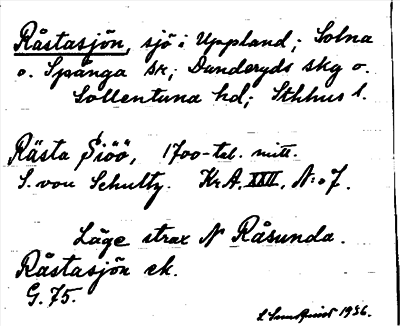 Råstasjön, sjö i Uppland; Solna
o. Spånga sr; Danderyds skg o.
Sollentuna hd; Sthlms l.
Rästa Siöö, 1700-tal. mitt.
S. von Schultz. Kr A. XXII, N:o 7.
Läge strax N Råsunda.
Råstasjön ek.
G. 75.
1936.